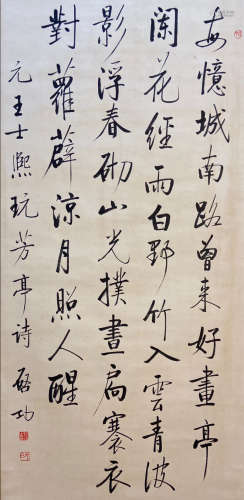 每憶城南路曾来好畫亭
闌花經雨白野竹入雲青波
影浮春砌山光撲晝扃褰衣
對蘿薜涼月照人醒
元王士熙玩芳亭詩 啟功